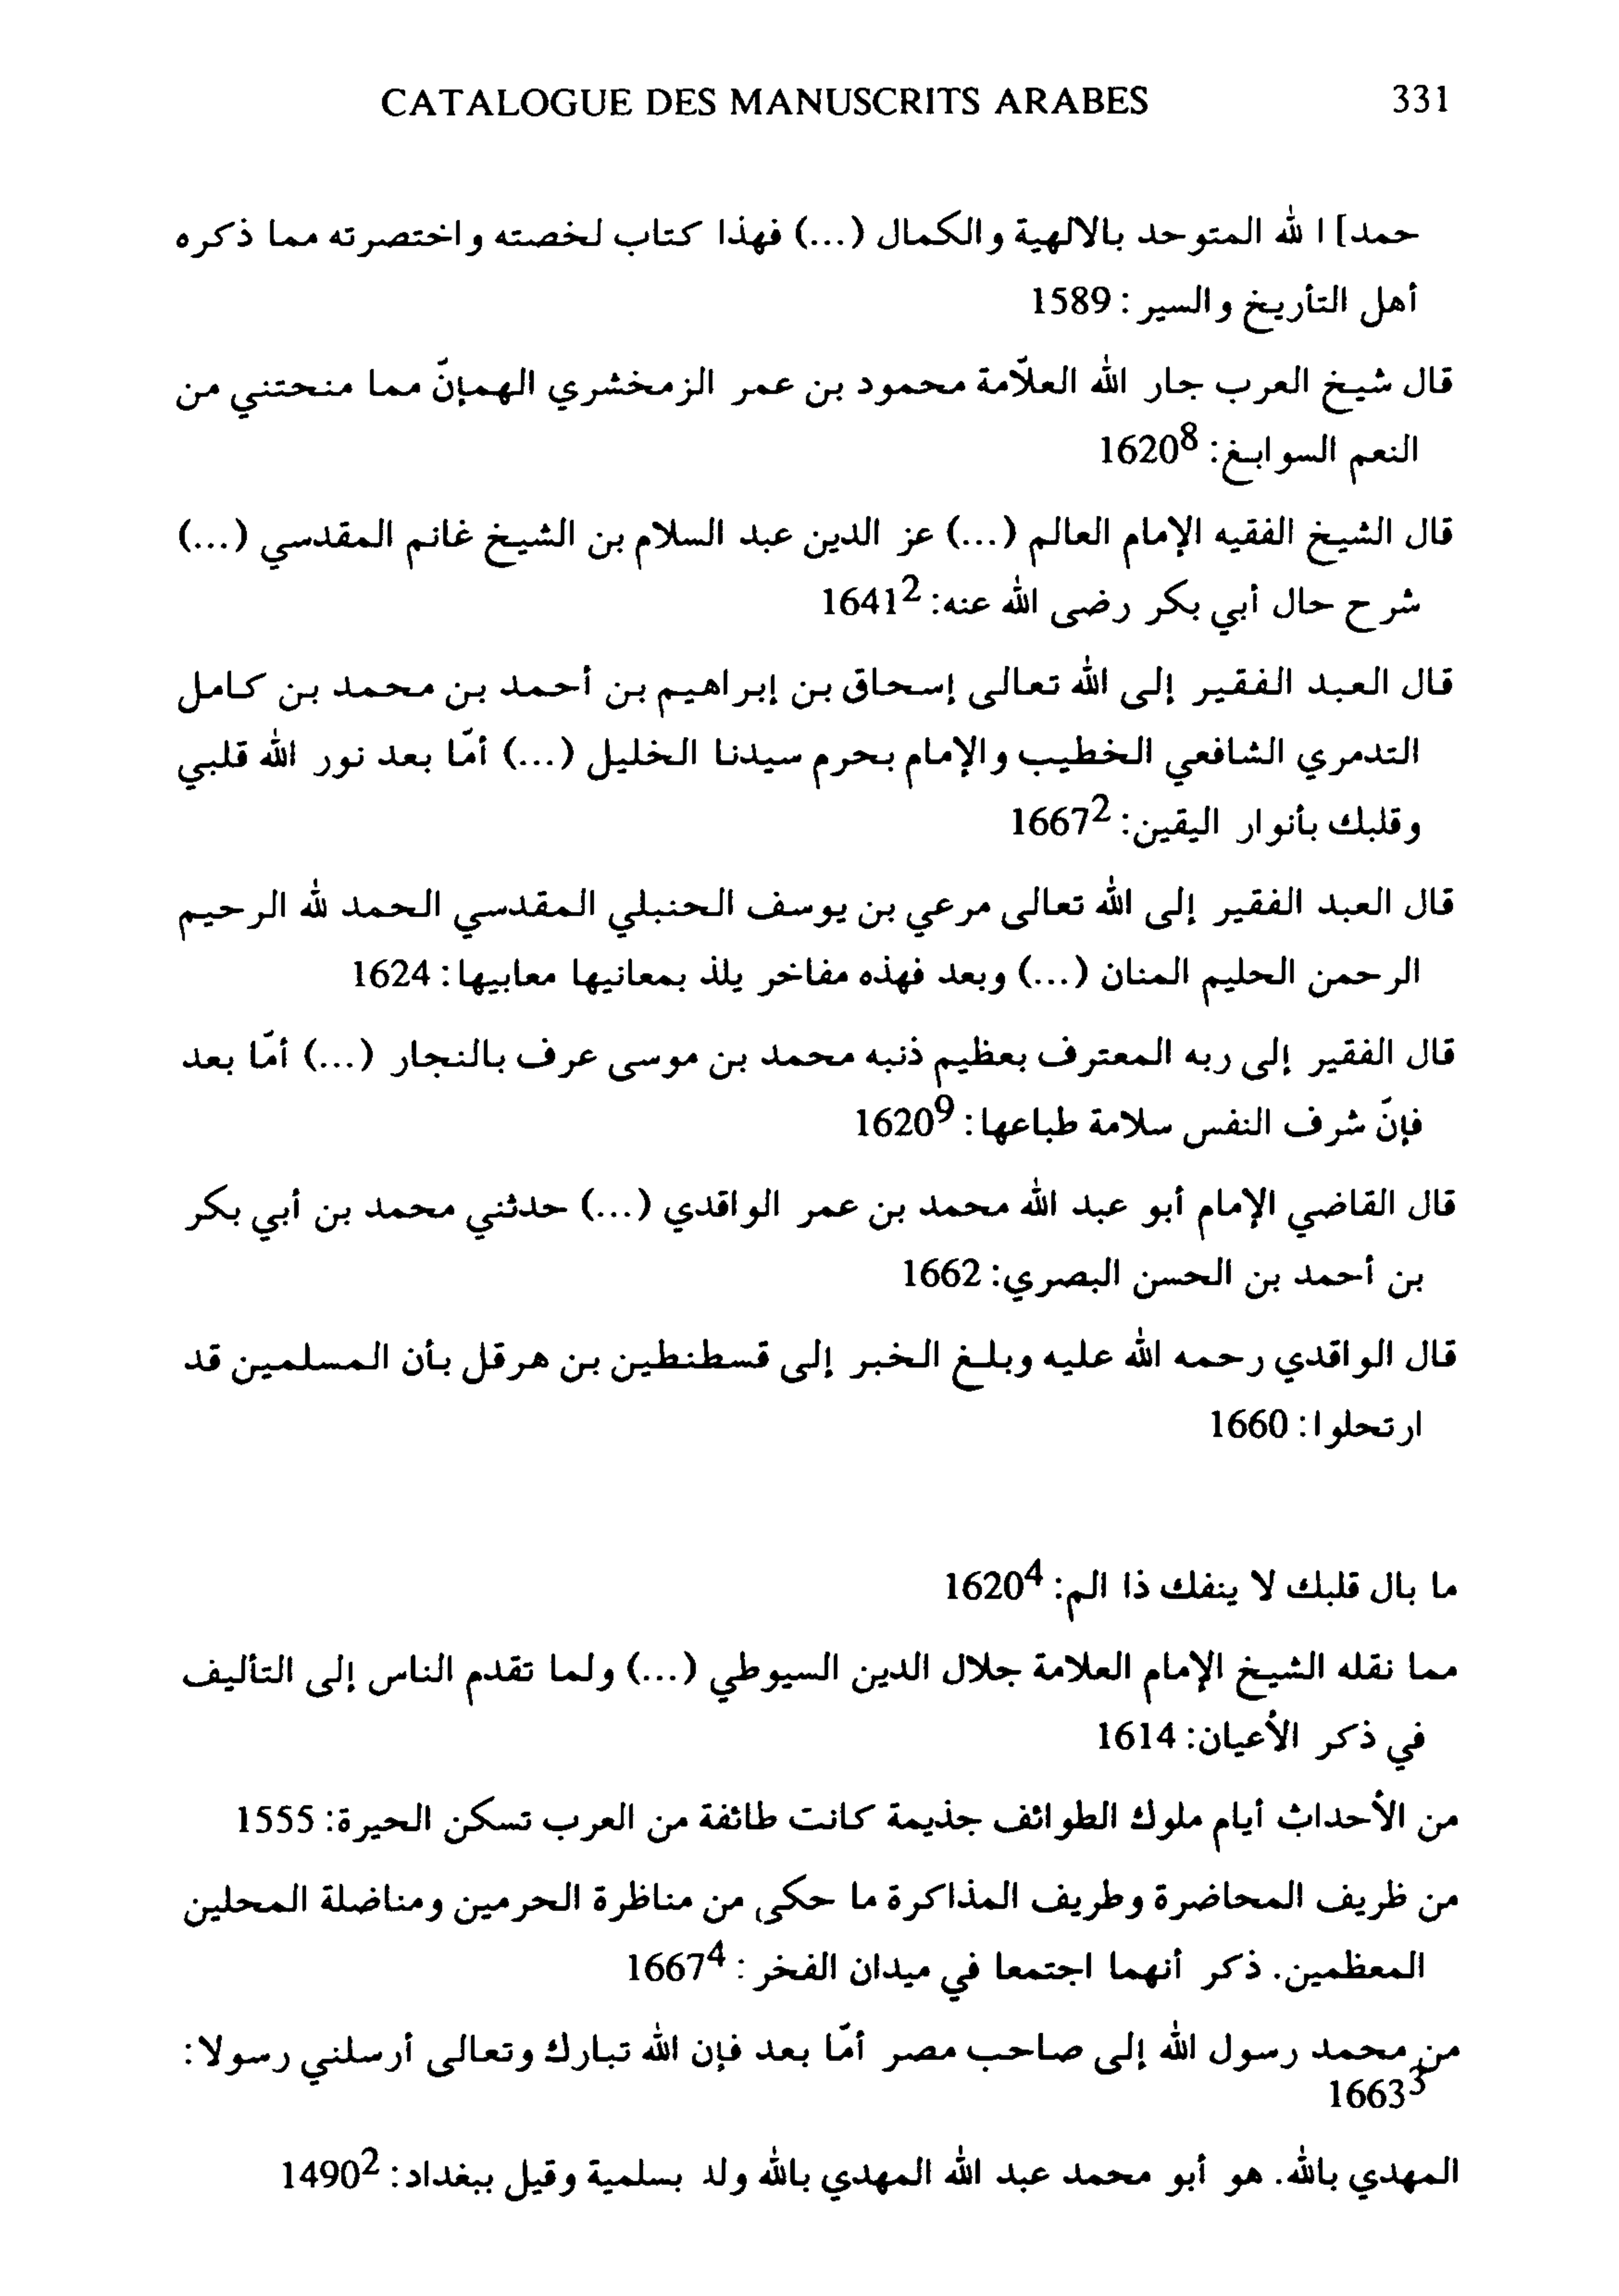 CATALOGUE DES MANUSCRITS ARABES 331
حمد] ا لله المتوحد بالالهية والكمال (...) فهذا كتاب لخصته واختصرته مما ذكره
أهل التأريخ والسير : 1589
قال شيخ العرب جار الله العلاّمة محمود بن عمر الزمخشري الهمإنّ مما منحتني من
النعم السوابغ: 1620⁸
قال الشيخ الفقيه الإمام العالم (...) عز الدين عبد السلام بن الشيخ غانم المقدسي (...)
شرح حال أبي بكر رضى الله عنه: 1641²
قال العبد الفقير إلى الله تعالى إسحاق بن إبراهيم بن أحمد بن محمد بن كامل
التدمري الشافعي الخطيب والإمام بحرم سيدنا الخليل (...) أمّا بعد نور الله قلبي
وقلبك بأنوار اليقين: 1667²
قال العبد الفقير إلى الله تعالى مرعي بن يوسف الحنبلي المقدسي الحمد لله الرحيم
الرحمن الحليم المنان (...) وبعد فهذه مفاخر يلذ بمعانيها معابيها : 1624
قال الفقير إلى ربه المعترف بعظيم ذنبه محمد بن موسى عرف بالنجار (...) أمّا بعد
فإنّ شرف النفس سلامة طباعها : 1620⁹
قال القاضي الإمام أبو عبد الله محمد بن عمر الواقدي (...) حدثني محمد بن أبي بكر
بن أحمد بن الحسن البصري: 1662
قال الواقدي رحمه الله عليه وبلغ الخبر إلى قسطنطين بن هرقل بأن المسلمين قد
ارتحلوا : 1660
ما بال قلبك لا ينفك ذا الم: 1620⁴
مما نقله الشيخ الإمام العلامة جلال الدين السيوطي (...) ولما تقدم الناس إلى التأليف
في ذكر الأعيان: 1614
من الأحداث أيام ملوك الطوائف جذيمة كانت طائفة من العرب تسكن الحيرة: 1555
من ظريف المحاضرة وطريف المذاكرة ما حكى من مناظرة الحرمين ومناضلة المحلين
المعظمين. ذكر أنهما اجتمعا في ميدان الفخر : 1667⁴
من محمد رسول الله إلى صاحب مصر أمّا بعد فإن الله تبارك وتعالى أرسلني رسولا :
1663³
المهدي بالله. هو أبو محمد عبد الله المهدي بالله ولد بسلمية وقيل ببغداد : 1490²